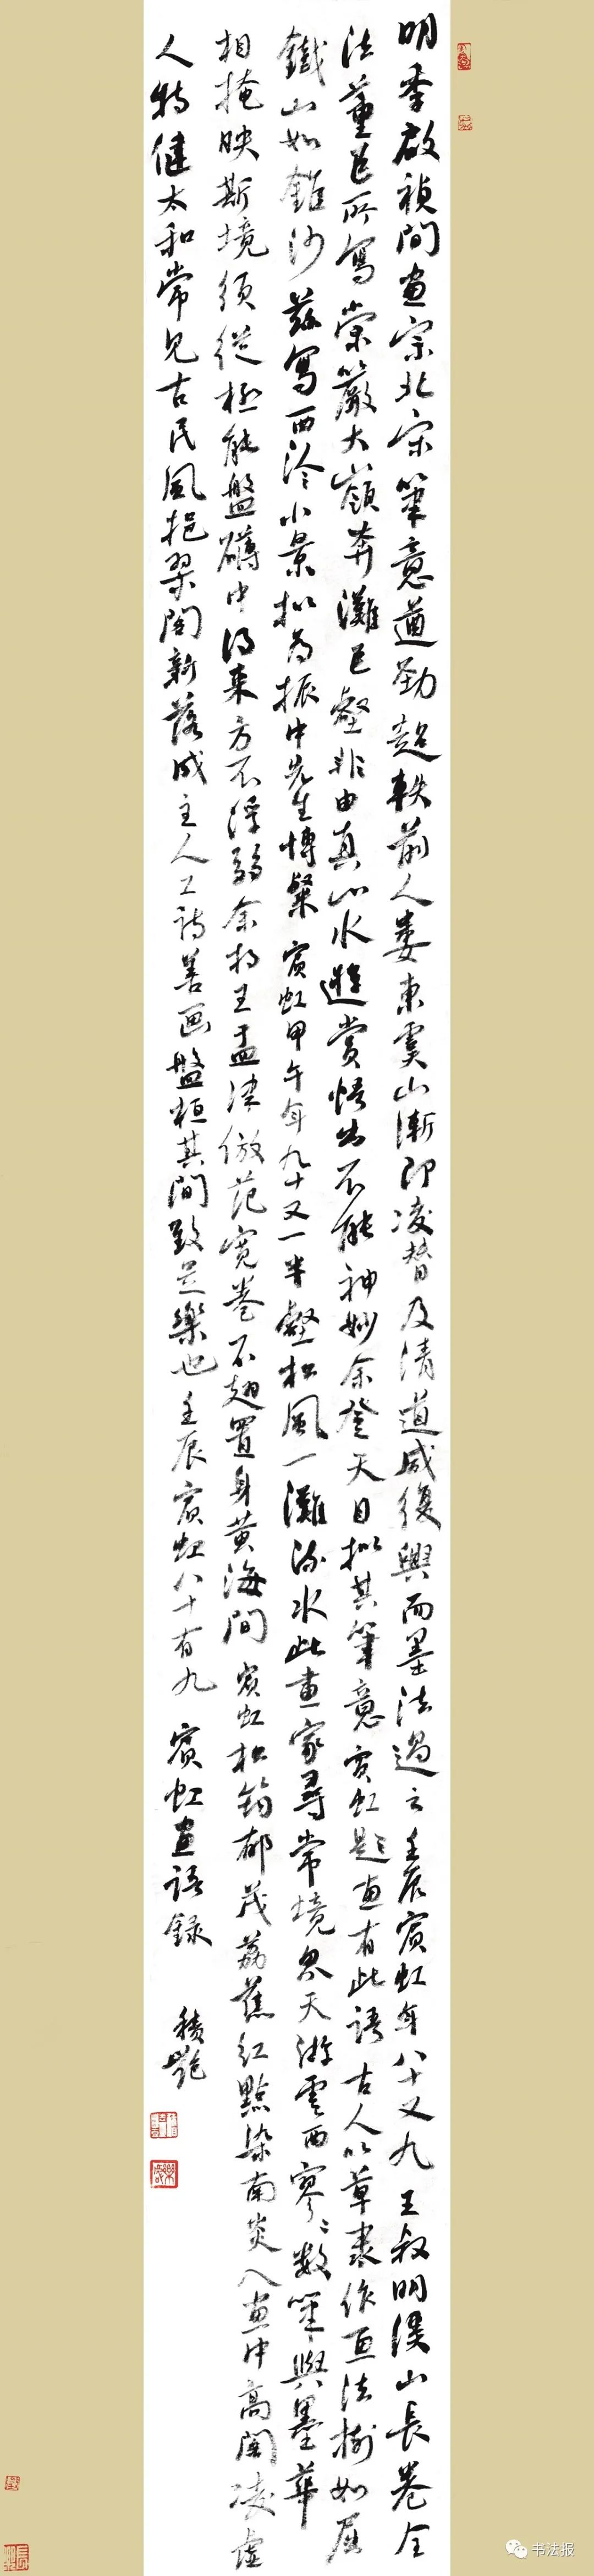 明季啟禎間畫宗北宋筆意遒勁超軼前人婁東虞山漸即凌替及清道咸復興而墨法過云壬辰賓虹年八十又九王叔明溪山長卷全
法董巨所寫崇巖大嶺奔灘巨壑非由真山水遊賞悟出不能神妙余登天目擬其筆意賓虹題畫有此語古人以草隸作畫法樹如屈
鐵山如錐沙茲寫西泠小景擬為振中先生博粲賓虹甲午年九十又一半壑松風一灘流水此畫家尋常境界天游雲西寥寥數筆與墨華
相掩映斯境須從極能盤礴中得來方不浮弱余於王孟津倣范寬卷不翅置身黃海間賓虹松筠郁茂荔蕉紅點染南炎入畫中高閣凌虛
人特健太和常見古民風挹翠閣新落成主人工詩善画盤桓其間致足樂也壬辰賓虹八十有九賓虹畫語錄
書法报